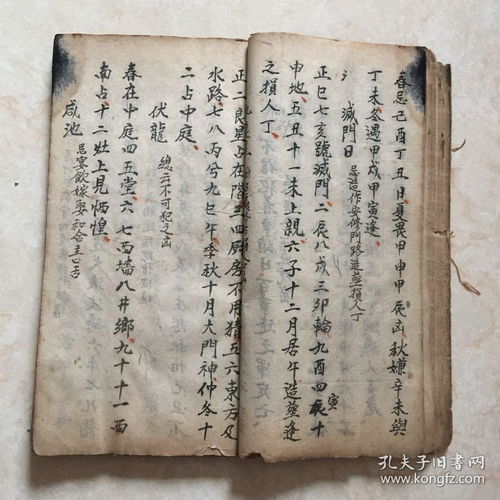 春忌己酉丁丑日夏畏甲申甲辰凶秋嫌辛未與
丁未冬遇甲戌甲寅逢
滅門日 忌造作安修門路造塟損人丁
正巳七亥號滅門二辰八戌三卯輪九酉四寅十
申地五丑十一未上親六子十二月居午造塟逢
之損人丁
正二良星占在階三四厨房不用猜五六東方及
水路七八丙兮九巳午季秋十月大門神仲冬十
二占中庭
伏龍 總云不可犯之凶
春在中庭四五堂六七西墻八井鄉九十十一西
南占十二灶上見恓惶
咸池 忌宴飲嫁娶和合主口舌
孔夫子旧書网
www.kongfz.com